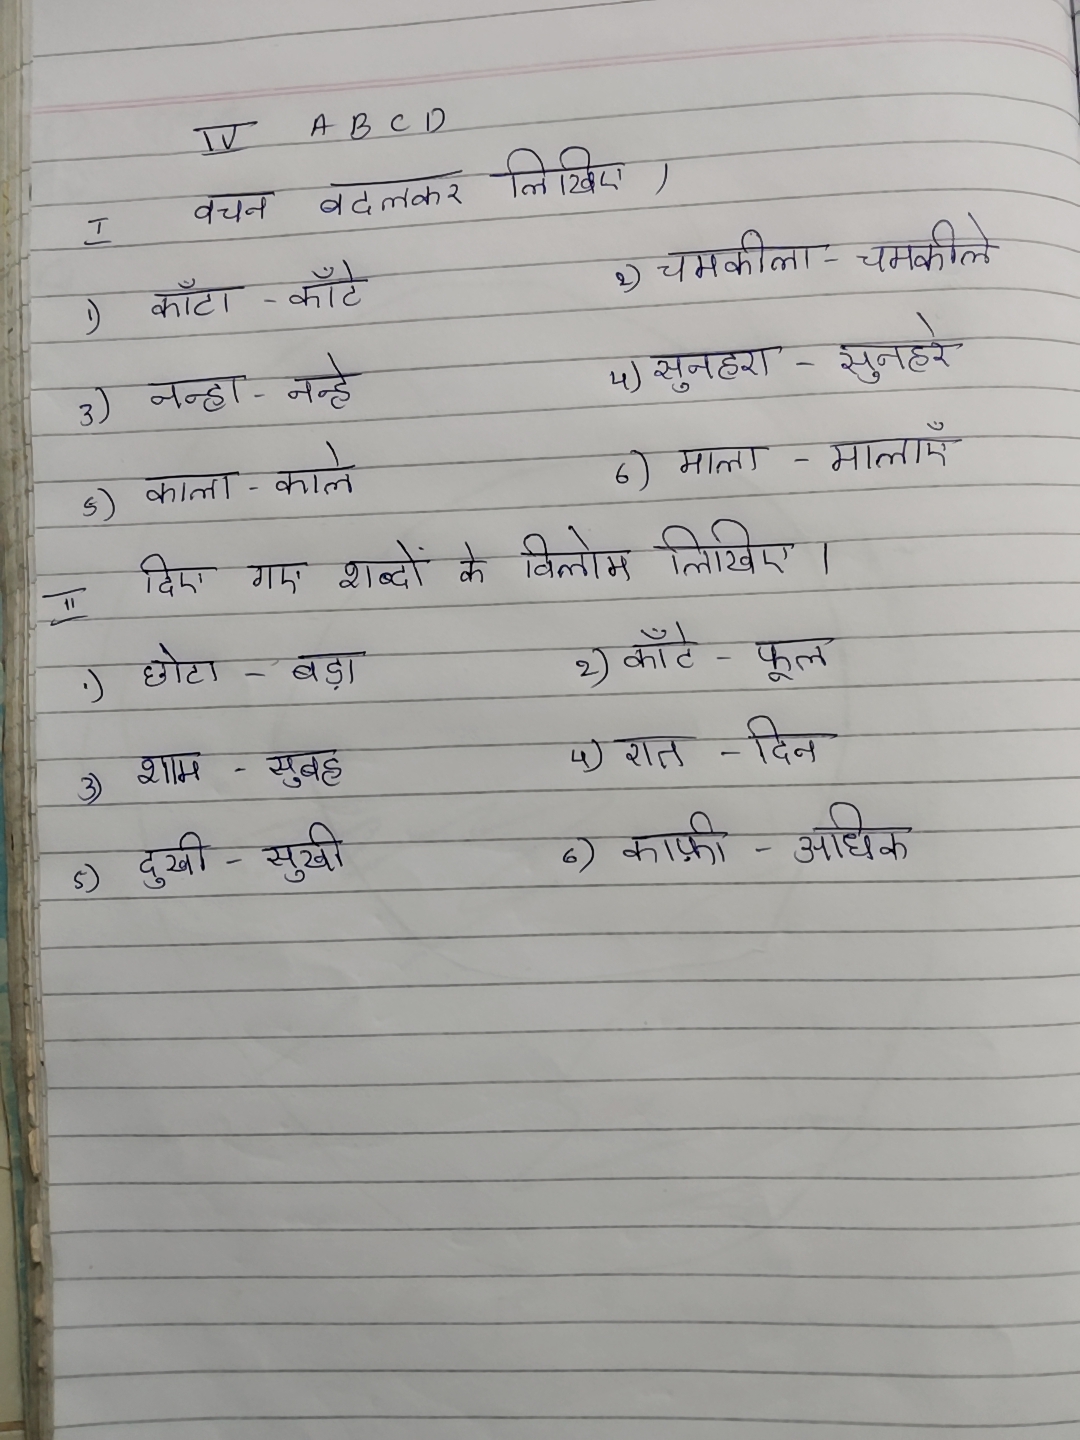 IV A B C D
I वचन बदलकर लिखिए ।
1) काँटा - काँटे 2) चमकीला - चमकीले
3) नन्हा - नन्हे 4) सुनहरा - सुनहरे
5) काला - काले 6) माला - मालाएँ
II दिए गए शब्दों के विलोम लिखिए ।
1) छोटा - बड़ा 2) काँटे - फूल
3) शाम - सुबह 4) रात - दिन
5) दुखी - सुखी 6) काफ़ी - अधिक